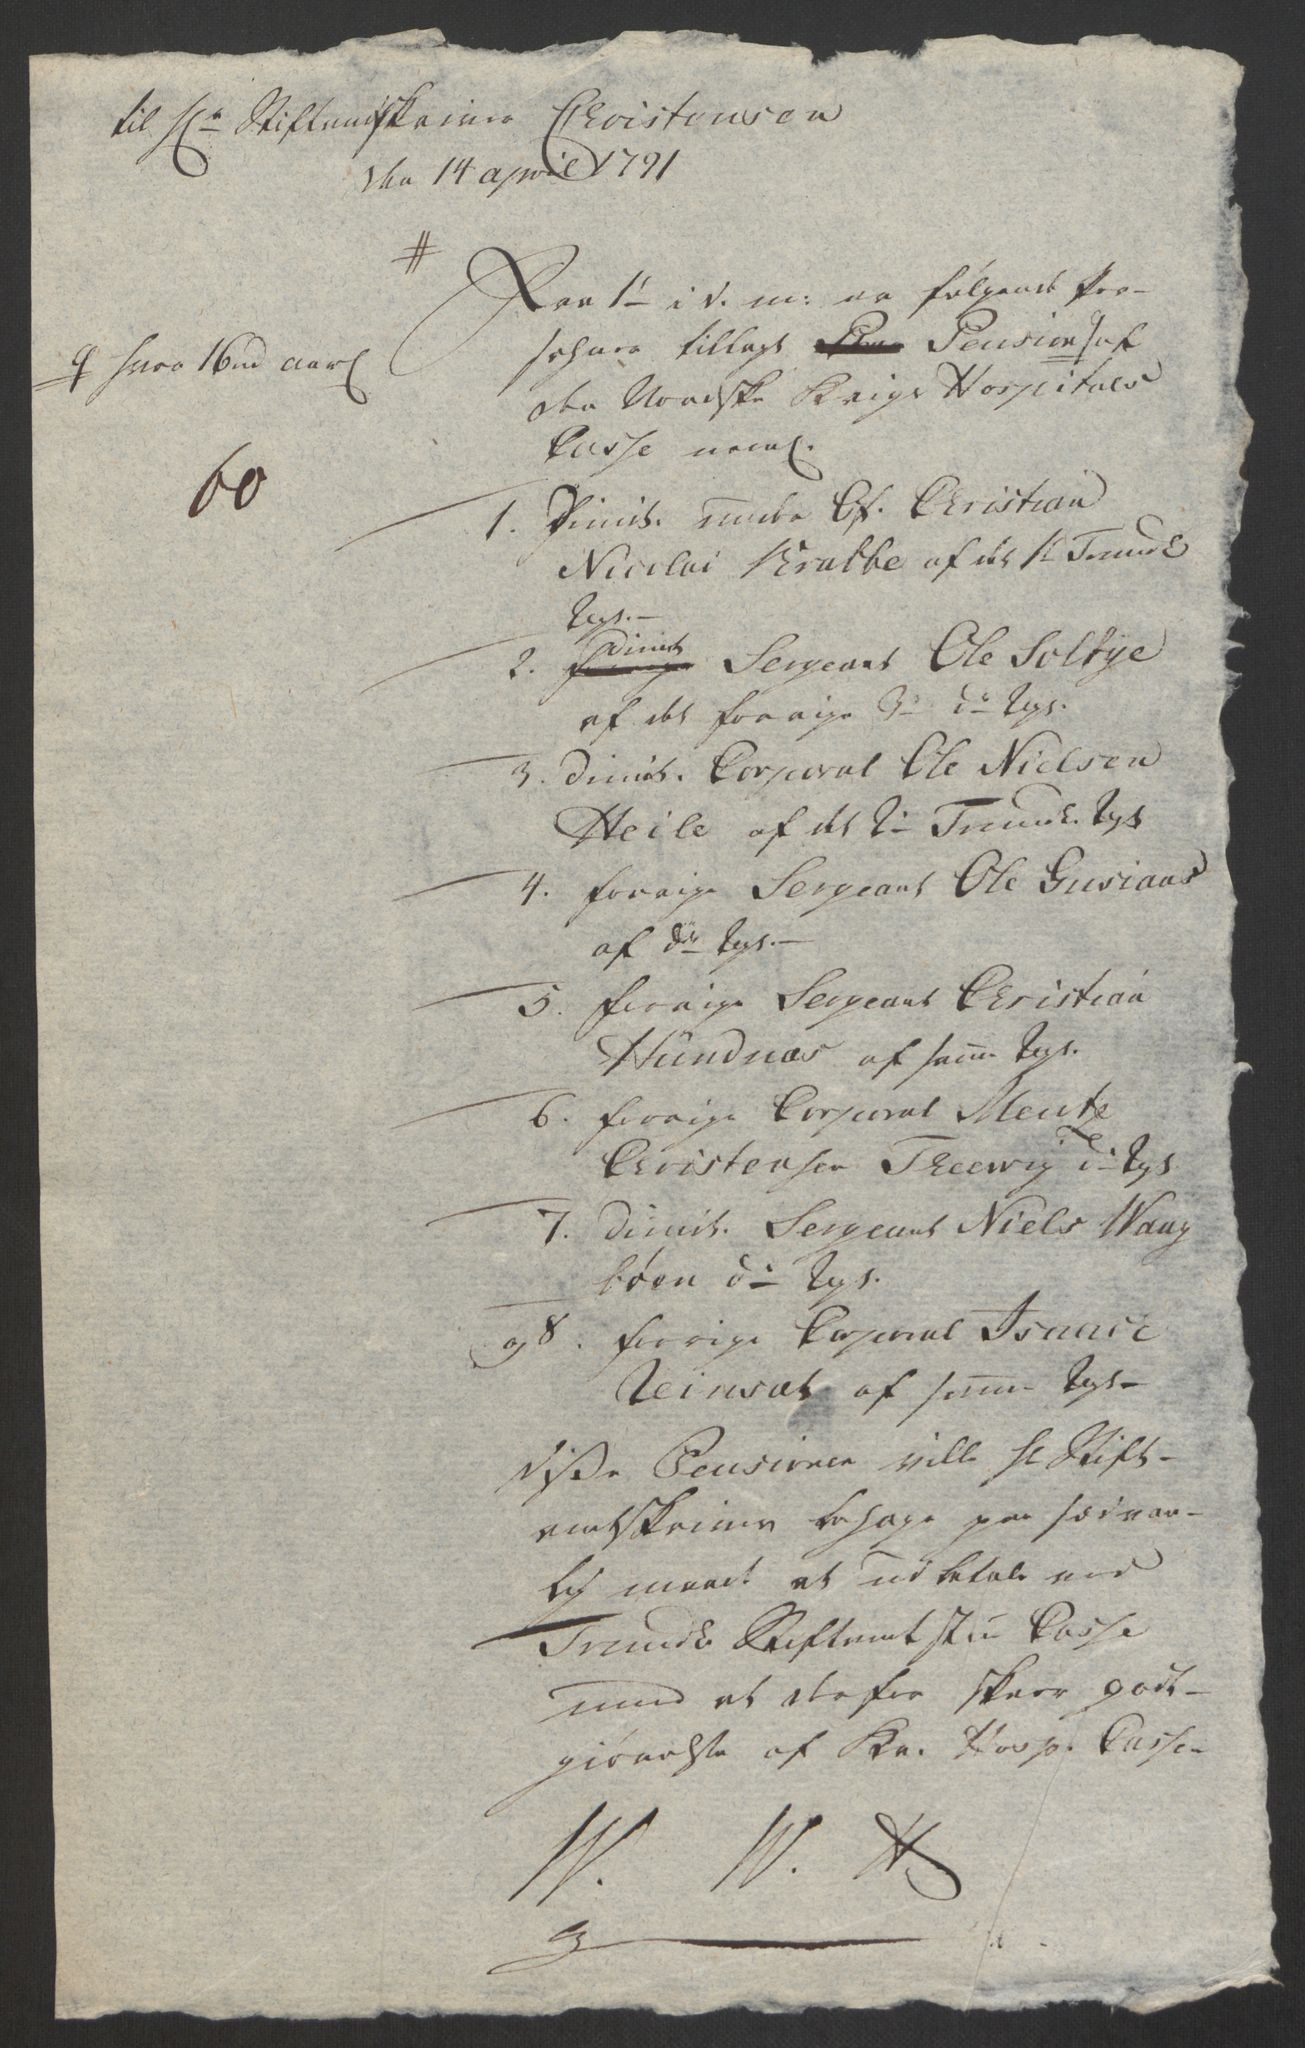 til Hr Stiftamtskriver Christensen
den 14 april 1791
#
Fra 1te i d. m: er følgende Per-
sohner tillagt Pension af
den Nordske Krigs Hospitals
Casse neml.
q hver 16 rd aarl
60
1. Dimit. under Of. Christian
Nicolai Krabbe af det 1t Trondh
Regt.
2. dimit Sergeant Ole Solbye
af det forrige 3de do Regt.
3. dimit. Corporal Ole Nielsen
Heile af det 2de Trondh. Regt
4. forrige Sergeant Ole Gusiaas
af do Regt.
5. forrige Sergeant Christian
Hundnæs af samme Regt.
6. forrige Corporal Mentz
Christensen Treewig do Regt
7. dimit. Sergeant Niels Waag
bøen do Regt.
og 8. forrige Corporal Isaac
Reinsæt af samme Regt
disse Pensioner ville Hr Stift-
amtskriver behage paa sædvan-
lig maade at udbetale ved
Trondh. Stiftamtstue Casse
mod at derfor skeer godt-
giørelse af Kr. Hosp. Casse
W. W. H